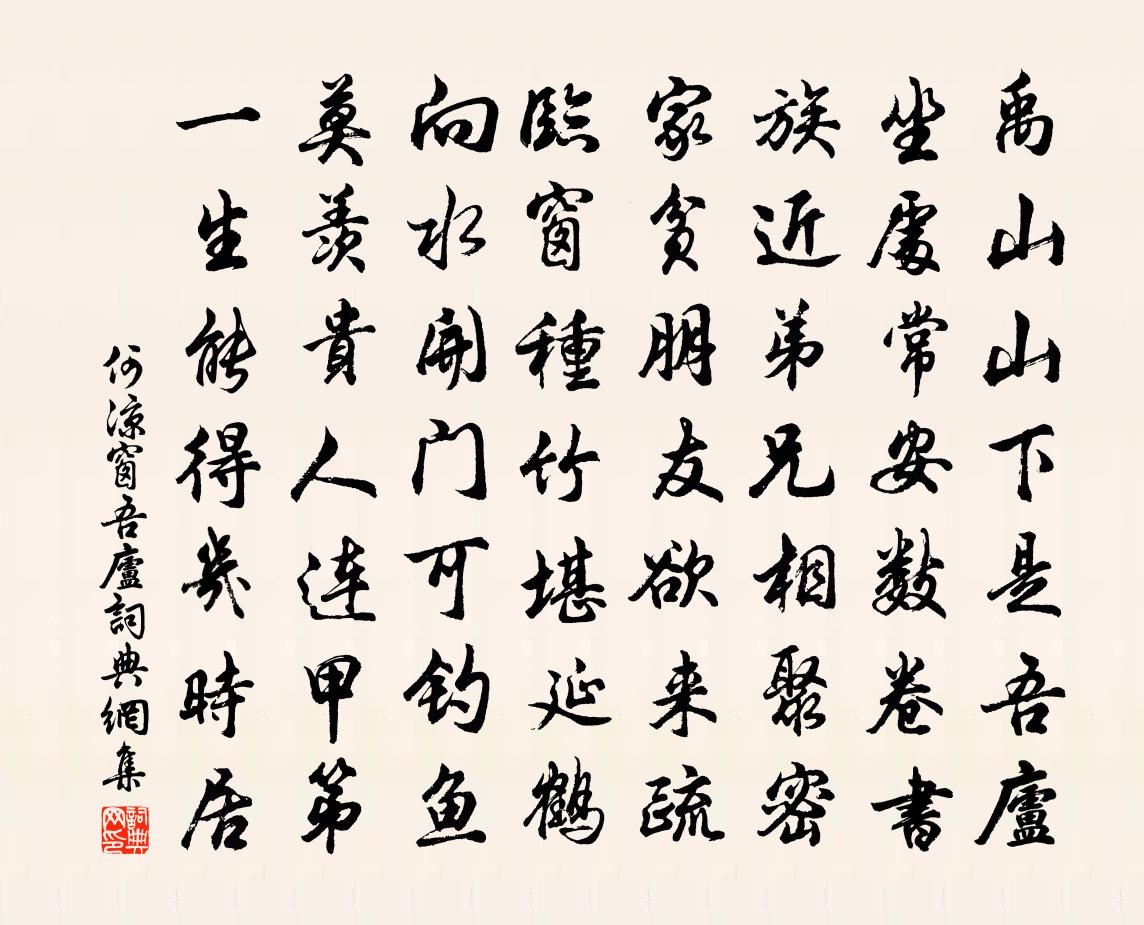 禹山山下是吾廬
坐處常安數卷書
族近弟兄相聚密
家貧朋友欲来疏
臨窗種竹堪延鶴
向水開門可釣魚
莫羨貴人連甲第
一生能得幾時居
何涼窗吾廬詞典網集
詞典网印